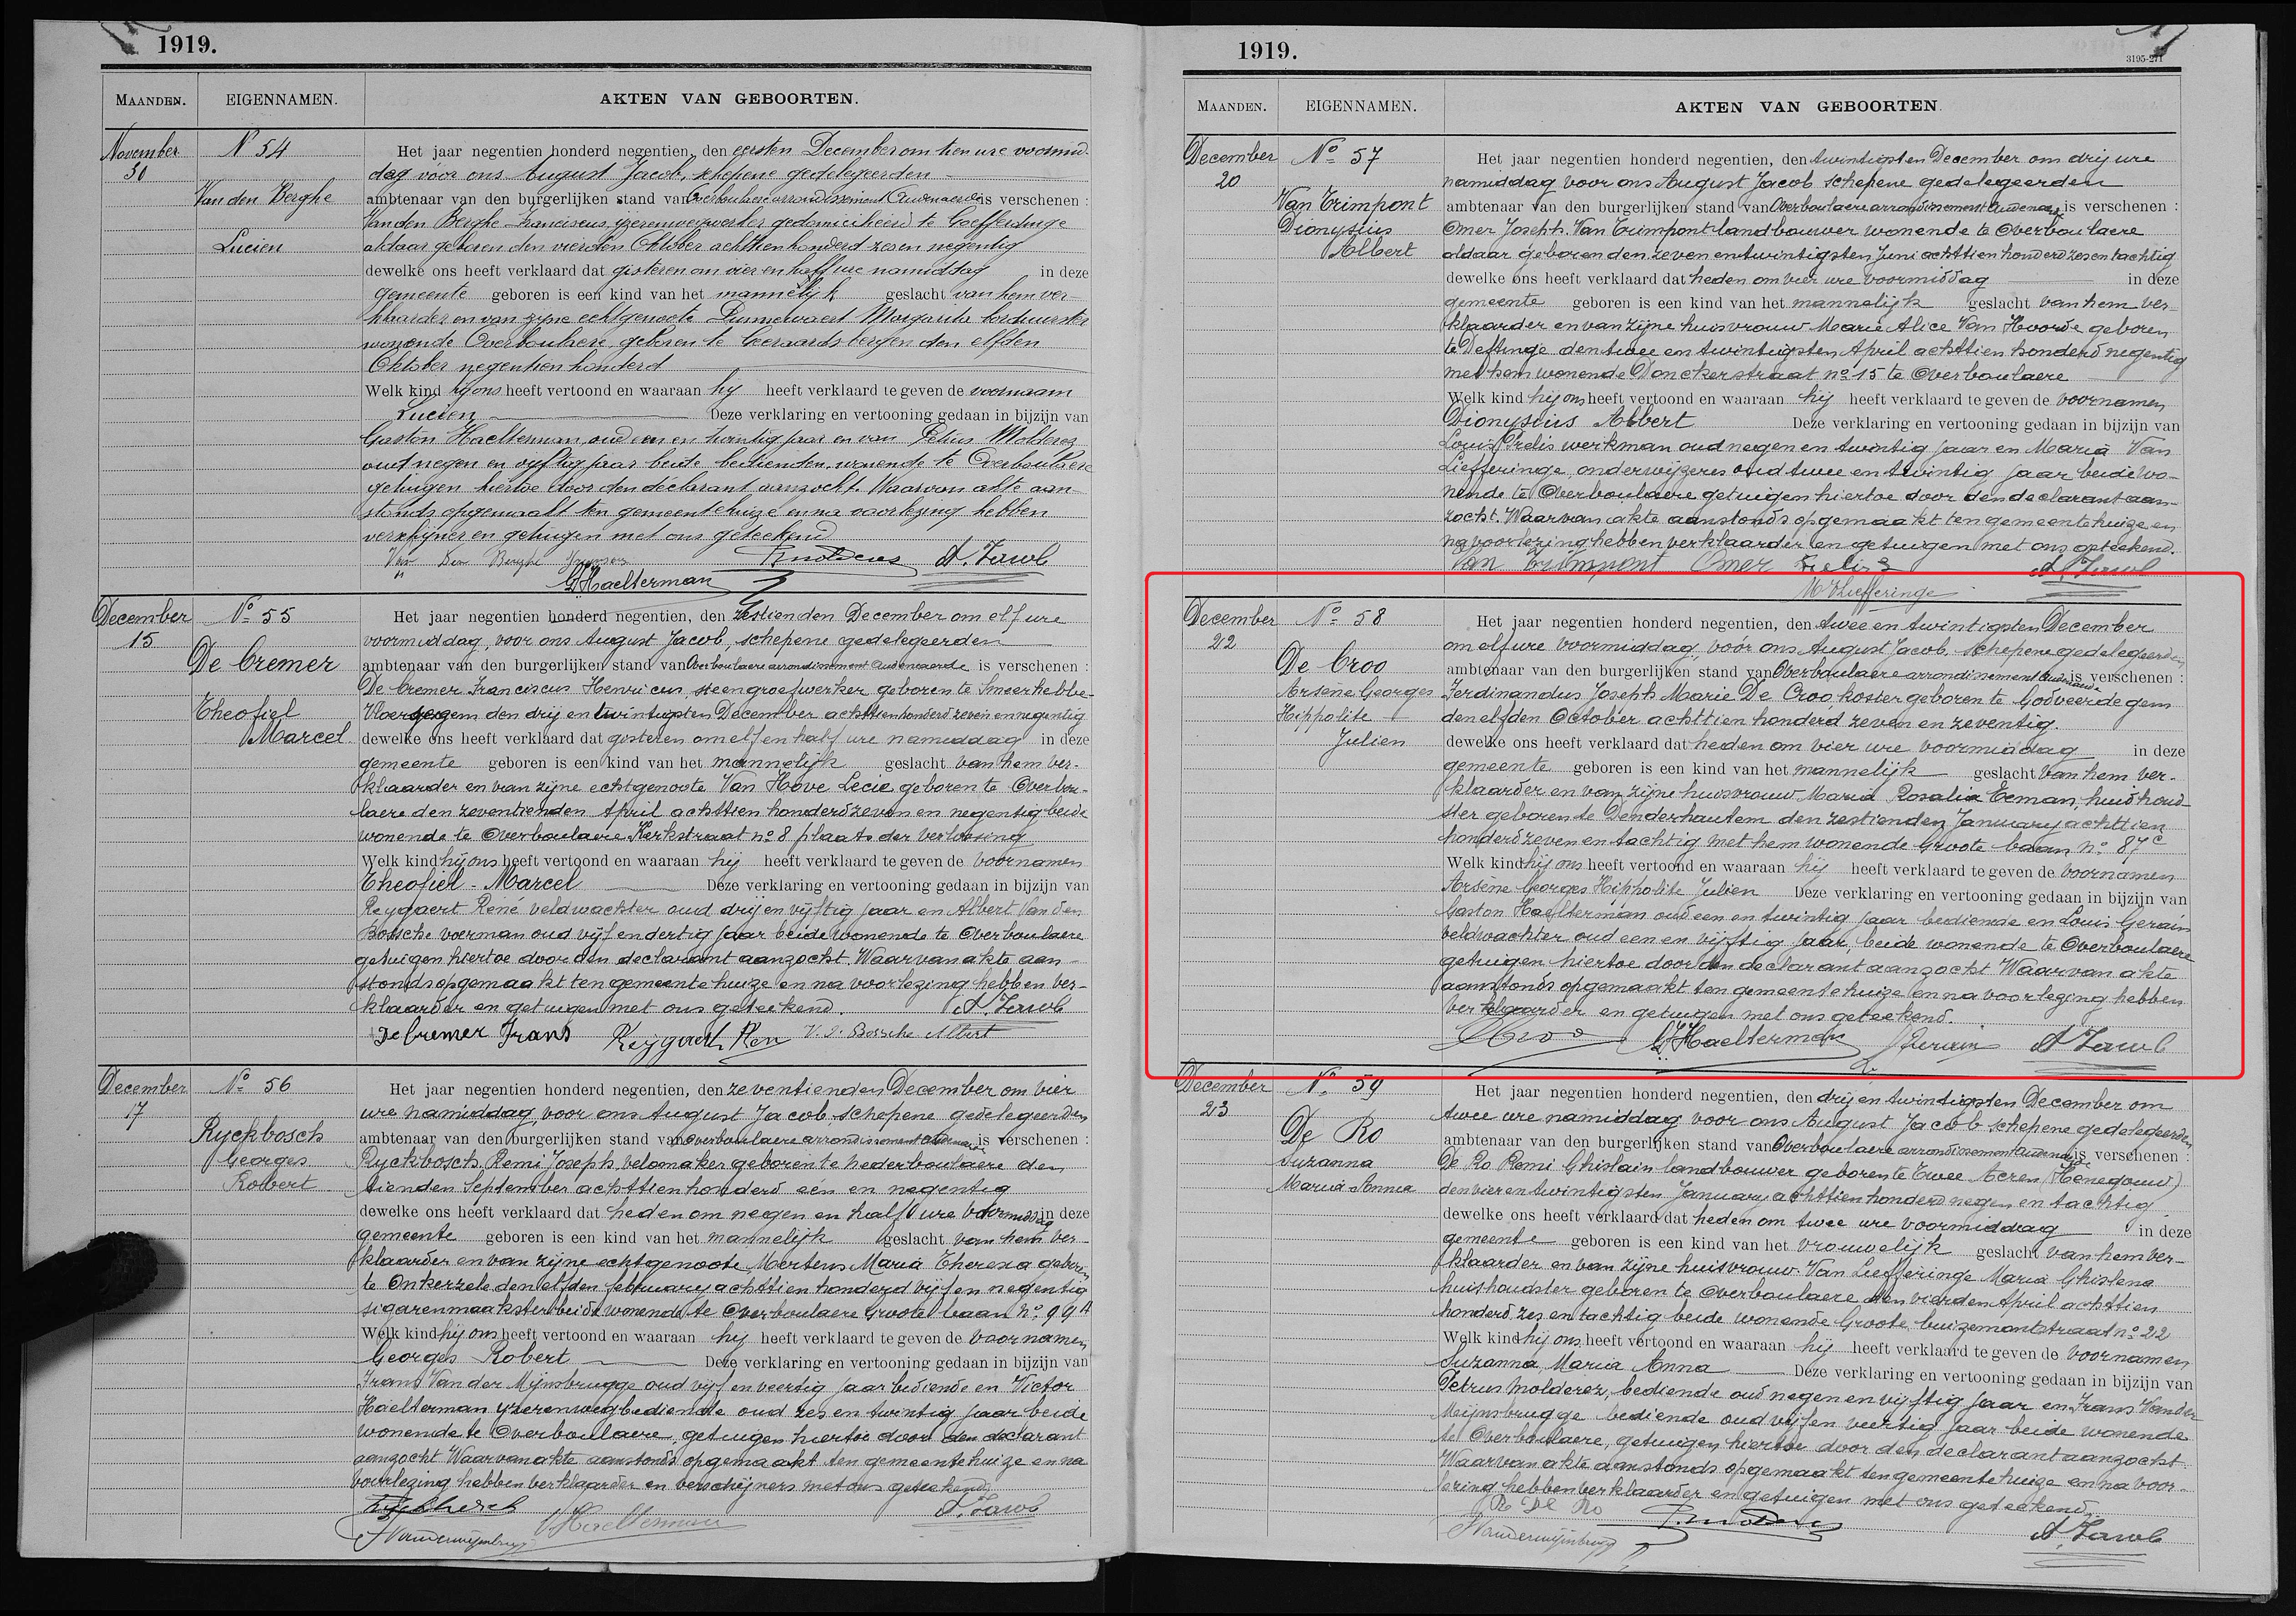 1919.
MAANDEN. EIGENNAMEN. AKTEN VAN GEBOORTEN.
November
30
N 54
Van den Berghe
Lucien
Het jaar negentien honderd negentien, den eersten December om tien ure voormid-
dag voor ons August Jacob, schepene gedelegeerden
ambtenaar van den burgerlijken stand van Overboulaere arrondissement Audenaerde is verschenen :
Van den Berghe Franciscus ijzerenwegwerker gedomicilieerd te Goefferdinge
aldaar geboren den vierden Oktober achttienhonderd zes en negentig
dewelke ons heeft verklaard dat gisteren om vier en half ure namiddag in deze
gemeente geboren is een kind van het mannelijk geslacht van hem ver-
klaarder en van zijne echtgenoote Margarita
wonende Overboulaere geboren te Geeraardsbergen den elfden
Oktober negentien honderd
Welk kind hij ons heeft vertoond en waaraan hij heeft verklaard te geven de voornaam
Lucien Deze verklaring en vertooning gedaan in bijzijn van
Gaston Haelterman oud een en twintig jaar en van Petrus Molderez
oud negen en vijftig jaar beide bedienden wonende te Overboulaere
getuigen hiertoe door den declarant aanzocht. Waarvan akte aan-
stonds opgemaakt ten gemeentehuize en na voorlezing hebben
verschijner en getuigen met ons geteekend
Van Den Berghe A. Jacob
G. Haelterman
December
15
No 55
De Cremer
Theofiel
Marcel
Het jaar negentien honderd negentien, den zestienden December om elf ure
voormiddag, voor ons August Jacob, schepene gedelegeerden
ambtenaar van den burgerlijken stand van Overboulaere arrondissement Audenaerde is verschenen :
De Cremer Franciscus Henricus, steengroefwerker geboren te Smeerhebbe-
Vloerzegem den drij en twintigsten December achttienhonderd zeven en negentig
dewelke ons heeft verklaard dat gisteren om elf en half ure namiddag in deze
gemeente geboren is een kind van het mannelijk geslacht van hem ver-
klaarder en van zijne echtgenoote Van Hove Lecie geboren te Overbou-
laere den zeventienden April achttien honderd zeven en negentig beide
wonende te Overboulaere Kerkstraat no 8 plaats der verlossing
Welk kind hij ons heeft vertoond en waaraan hij heeft verklaard te geven de voornamen
Theofiel - Marcel Deze verklaring en vertooning gedaan in bijzijn van
Reygaert René veldwachter oud drij en vijftig jaar en Albert Van den
Bossche voerman oud vijf en dertig jaar beide wonende te Overboulaere
getuigen hiertoe door den declarant aanzocht. Waarvan akte aan-
stonds opgemaakt ten gemeentehuize en na voorlezing hebben ver-
klaarder en getuigen met ons geteekend. A. Jacob
De Cremer Frans Reygaert Ren V. d. Bossche Albert
December
17
No 56
Ryckbosch
Georges
Robert
Het jaar negentien honderd negentien, den zeventienden December om vier
ure namiddag, voor ons August Jacob, schepene gedelegeerden
ambtenaar van den burgerlijken stand van Overboulaere arrondissement Audenaerde is verschenen :
Ryckbosch, Remi Joseph, velomaker geboren te Nederboulaere den
tienden September achttienhonderd een en negentig
dewelke ons heeft verklaard dat heden om negen en half ure voormiddag in deze
gemeente geboren is een kind van het mannelijk geslacht van hem ver-
klaarder en van zijne echtgenoote Mertens Maria Theresa geboren
te Onkerzele den elfden february achttien honderd vijf en negentig
sigarenmaakster beide wonende te Overboulaere Groote baan no 99A
Welk kind hij ons heeft vertoond en waaraan hij heeft verklaard te geven de voornamen
Georges Robert Deze verklaring en vertooning gedaan in bijzijn van
Frans Van der Mijnsbrugge oud vijf en veertig jaar bediende en Victor
Haelterman yzerenwegbediende oud zes en twintig jaar beide
wonende te Overboulaere, getuigen hiertoe door den declarant
aanzocht Waarvan akte aanstonds opgemaakt ten gemeentehuize en na
voorlezing hebben verklaarder en verschijners met ons geteekend
Ryckbosch V. Haelterman A. Jacob
1919.
3195-271
MAANDEN. EIGENNAMEN. AKTEN VAN GEBOORTEN.
December
20
No 57
Van Trimpont
Dionysius
Albert
Het jaar negentien honderd negentien, den twintigsten December om drij ure
namiddag voor ons August Jacob schepene gedelegeerden
ambtenaar van den burgerlijken stand van Overboulaere arrondissement Audenaerde is verschenen :
Omer Joseph Van Trimpont landbouwer wonende te Overboulaere
aldaar geboren den zeven en twintigsten Juni achttien honderd zes en tachtig
dewelke ons heeft verklaard dat heden om vier ure voormiddag in deze
gemeente geboren is een kind van het mannelijk geslacht van hem ver-
klaarder en van zijne huisvrouw Marie Alice Van Hoorde geboren
te Deftinge den twee en twintigsten April achttien honderd negentig
met hem wonende Donckerstraat no 15 te Overboulaere
Welk kind hij ons heeft vertoond en waaraan hij heeft verklaard te geven de voornamen
Dionysius Albert Deze verklaring en vertooning gedaan in bijzijn van
Louis Prelis werkman oud negen en twintig jaar en Maria Van
Liefferinge, onderwijzeres oud twee en twintig jaar beide wo-
nende te Overboulaere getuigen hiertoe door den declarant aan-
zocht. Waarvan akte aanstonds opgemaakt ten gemeentehuize en
na voorlezing hebben verklaarder en getuigen met ons geteekend.
Van Trimpont Omer A. Jacob
M Vliefferinge
December
22
No 58
De Croo
Arsene Georges
Hippolite
Julien
Het jaar negentien honderd negentien, den twee en twintigsten December
om elf ure voormiddag, vóór ons August Jacob, schepene gedelegeerden
ambtenaar van den burgerlijken stand van Overboulaere arrondissement Audenaerde is verschenen :
Ferdinandus Joseph Marie De Croo, koster geboren te Godveerdegem
den elfden October achttien honderd zeven en zeventig.
dewelke ons heeft verklaard dat heden om vier ure voormiddag in deze
gemeente geboren is een kind van het mannelijk geslacht van hem ver-
klaarder en van zijne huisvrouw Maria Rosalia Eeman, huishoud-
ster geboren te Denderhautem den zestienden January achttien
honderd zeven en tachtig met hem wonende Groote baan no 87c
Welk kind hij ons heeft vertoond en waaraan hij heeft verklaard te geven de voornamen
Arsène Georges Hippolite Julien Deze verklaring en vertooning gedaan in bijzijn van
Gaston Haelterman oud een en twintig jaar bediende en Louis Gerain
veldwachter oud een en vijftig jaar, beide wonende te Overboulaere
getuigen hiertoe door den declarant aanzocht Waarvan akte
aanstonds opgemaakt ten gemeentehuize en na voorlezing hebben
verklaarder en getuigen met ons geteekend.
G. Haelterman Gerain A Jacob
December
23
No 59
De Ro
Suzanna
Maria Anna
Het jaar negentien honderd negentien, den drij en twintigsten December om
twee ure namiddag voor ons August Jacob schepene gedelegeerden
ambtenaar van den burgerlijken stand van Overboulaere arrondissement Audenaerde is verschenen :
De Ro Remi Ghislain landbouwer geboren te Twee Acren (Henegouw)
den vier en twintigsten January achttien honderd negen en tachtig
dewelke ons heeft verklaard dat heden om twee ure voormiddag in deze
gemeente geboren is een kind van het vrouwelijk geslacht van hem ver-
klaarder en van zijne huisvrouw Van Liefferinge Maria Ghislena
huishoudster geboren te Overboulaere den vierden April achttien
honderd zes en tachtig beide wonende Groote buizemontstraat no 22
Welk kind hij ons heeft vertoond en waaraan hij heeft verklaard te geven de voornamen
Suzanna Maria Anna Deze verklaring en vertooning gedaan in bijzijn van
Petrus Molderez, bediende oud negen en vijftig jaar en Frans Vander
Meijnsbrugge bediende oud vijf en veertig jaar beide wonende
te Overboulaere, getuigen hiertoe door den declarant aanzocht
Waarvan akte aanstonds opgemaakt ten gemeentehuize en na voor-
lezing hebben verklaarder en getuigen met ons geteekend.
R De Ro A. Jacob